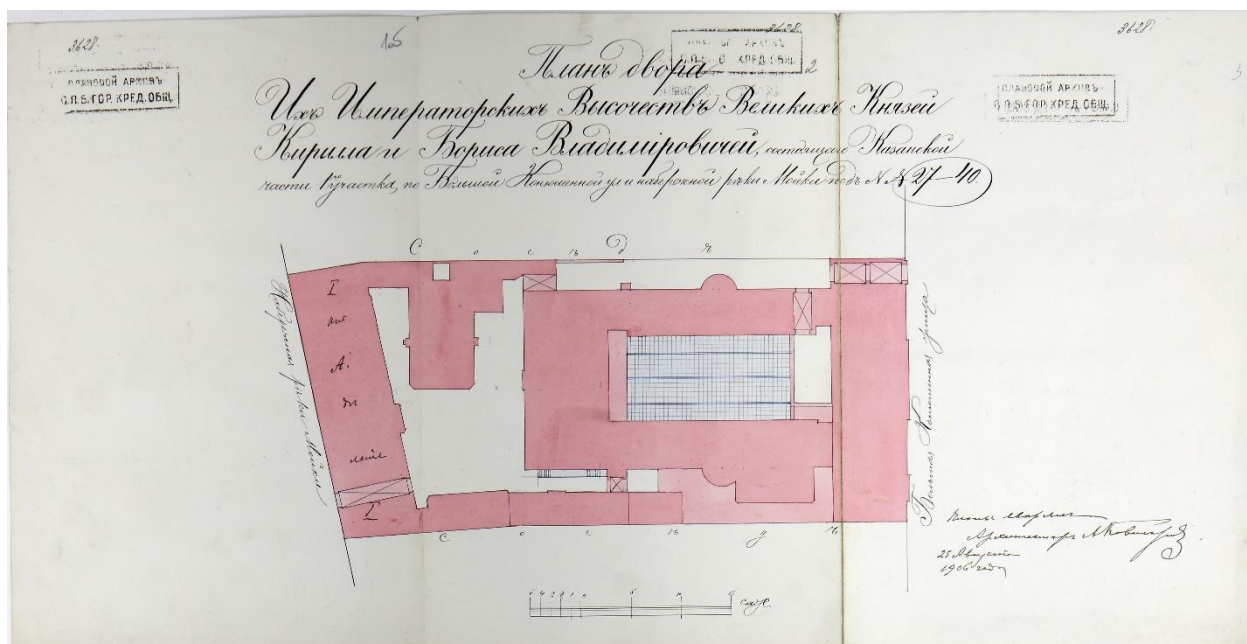 3628.
15
3628.
3628.
ПЛАНОВОЙ АРХИВЪ
С.П.Б. ГОР. КРЕД. ОБЩ.
2
ПЛАНОВОЙ АРХИВЪ
С.П.Б. ГОР. КРЕД. ОБЩ.
Планъ двора
Ихъ Императорскихъ Высочествъ Великихъ Князей
Кирилла и Бориса Владиміровичей, состоящаго Казанской
части 1 участка, по Большой Конюшенной ул и набережной рѣки Мойки подъ N N 27–40.
Сосѣдъ
Набережная рѣки Мойки
I
А.
Большая Конюшенная улица
Сосѣдъ
Архитекторъ
25 Августа
1906 года
5 4 3 2 1 0 5 10
саж.